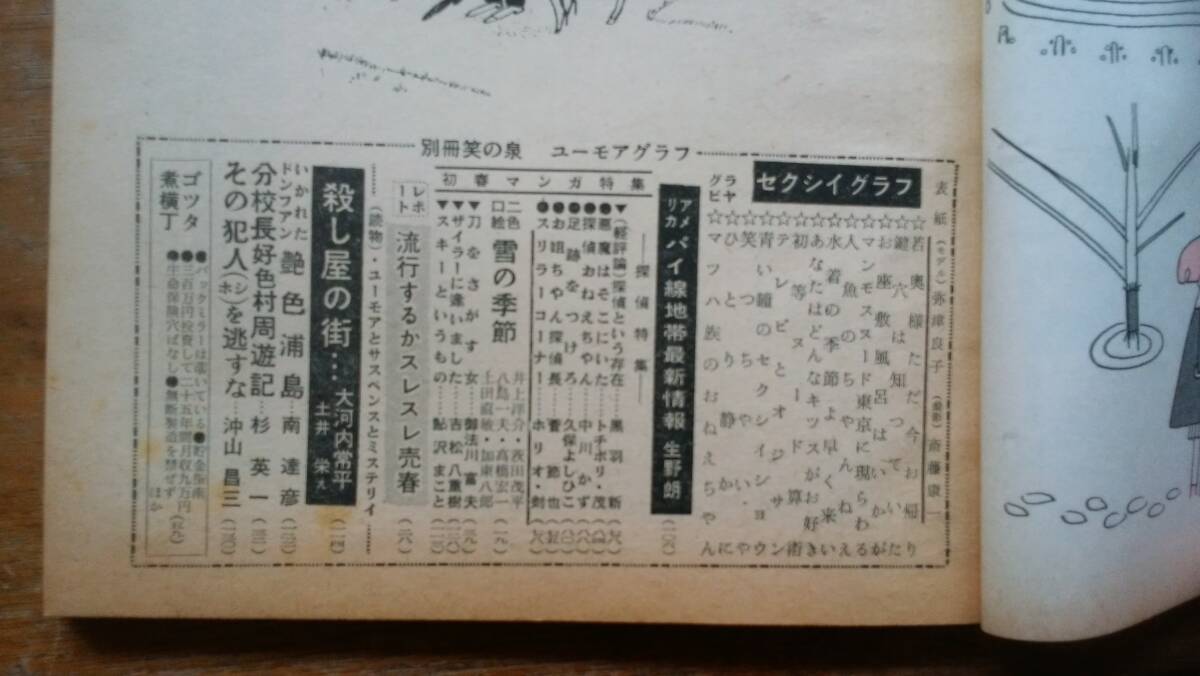 別冊笑の泉 ユーモアグラフ
表紙(モデル)弥津良子(撮影)斎藤康一
セクシイグラフ
グラビヤ
☆若奥様ただ今お帰り
☆鍵穴は知っていた
☆お座敷風呂はいかが
☆マンモスヌード東京に現らわる
☆人魚のちゃんねえ
☆水着の季節よ早く来い
☆あなたはどんなキッスがお好き
☆初等ヌード算術
☆テレビとオジサン
☆青い瞳のセクシイショウ
☆笑いっちゃいや
☆ひとり静かに
☆マフハ族のおねえちゃん
アメリカ パイ線地帯最新情報 生野朗
初春マンガ特集
―探偵特集―
▼(軽評論)探偵という存在…黒羽新
●悪魔はそこにいた…トチボリ・茂
●探偵おねえちゃん…中川かず
●足跡をつけろ…久保よしひこ
●お姐ちゃん探偵長…菅節也
●スリラーコーナー…ホリオ・剣
二色口絵 雪の季節 井上洋介・夜田茂平 八島一夫・高橋宏一 土田直敏・加東八郎
▼刀をさがす女…御法川富夫
▼ザイラーに違いました…吉松八重樹
▼スキーというもの…鮎沢まこと
レポート 流行するかスレスレ売春
(読物)・ユーモアとサスペンスとミステリイ
殺し屋の街… 大河内常平 土井栄え
いかれたドンファン 艶色浦島…南達彦
分校長好色村周遊記…杉英一
その犯人(ホシ)を逃すな…沖山昌三
ゴッタ煮横丁
●バックミラーは濡いている●貯金指南
●三百万円投資して二十五年間月収九万円
●生命保険穴ばなし●無断製造を禁ず ほか